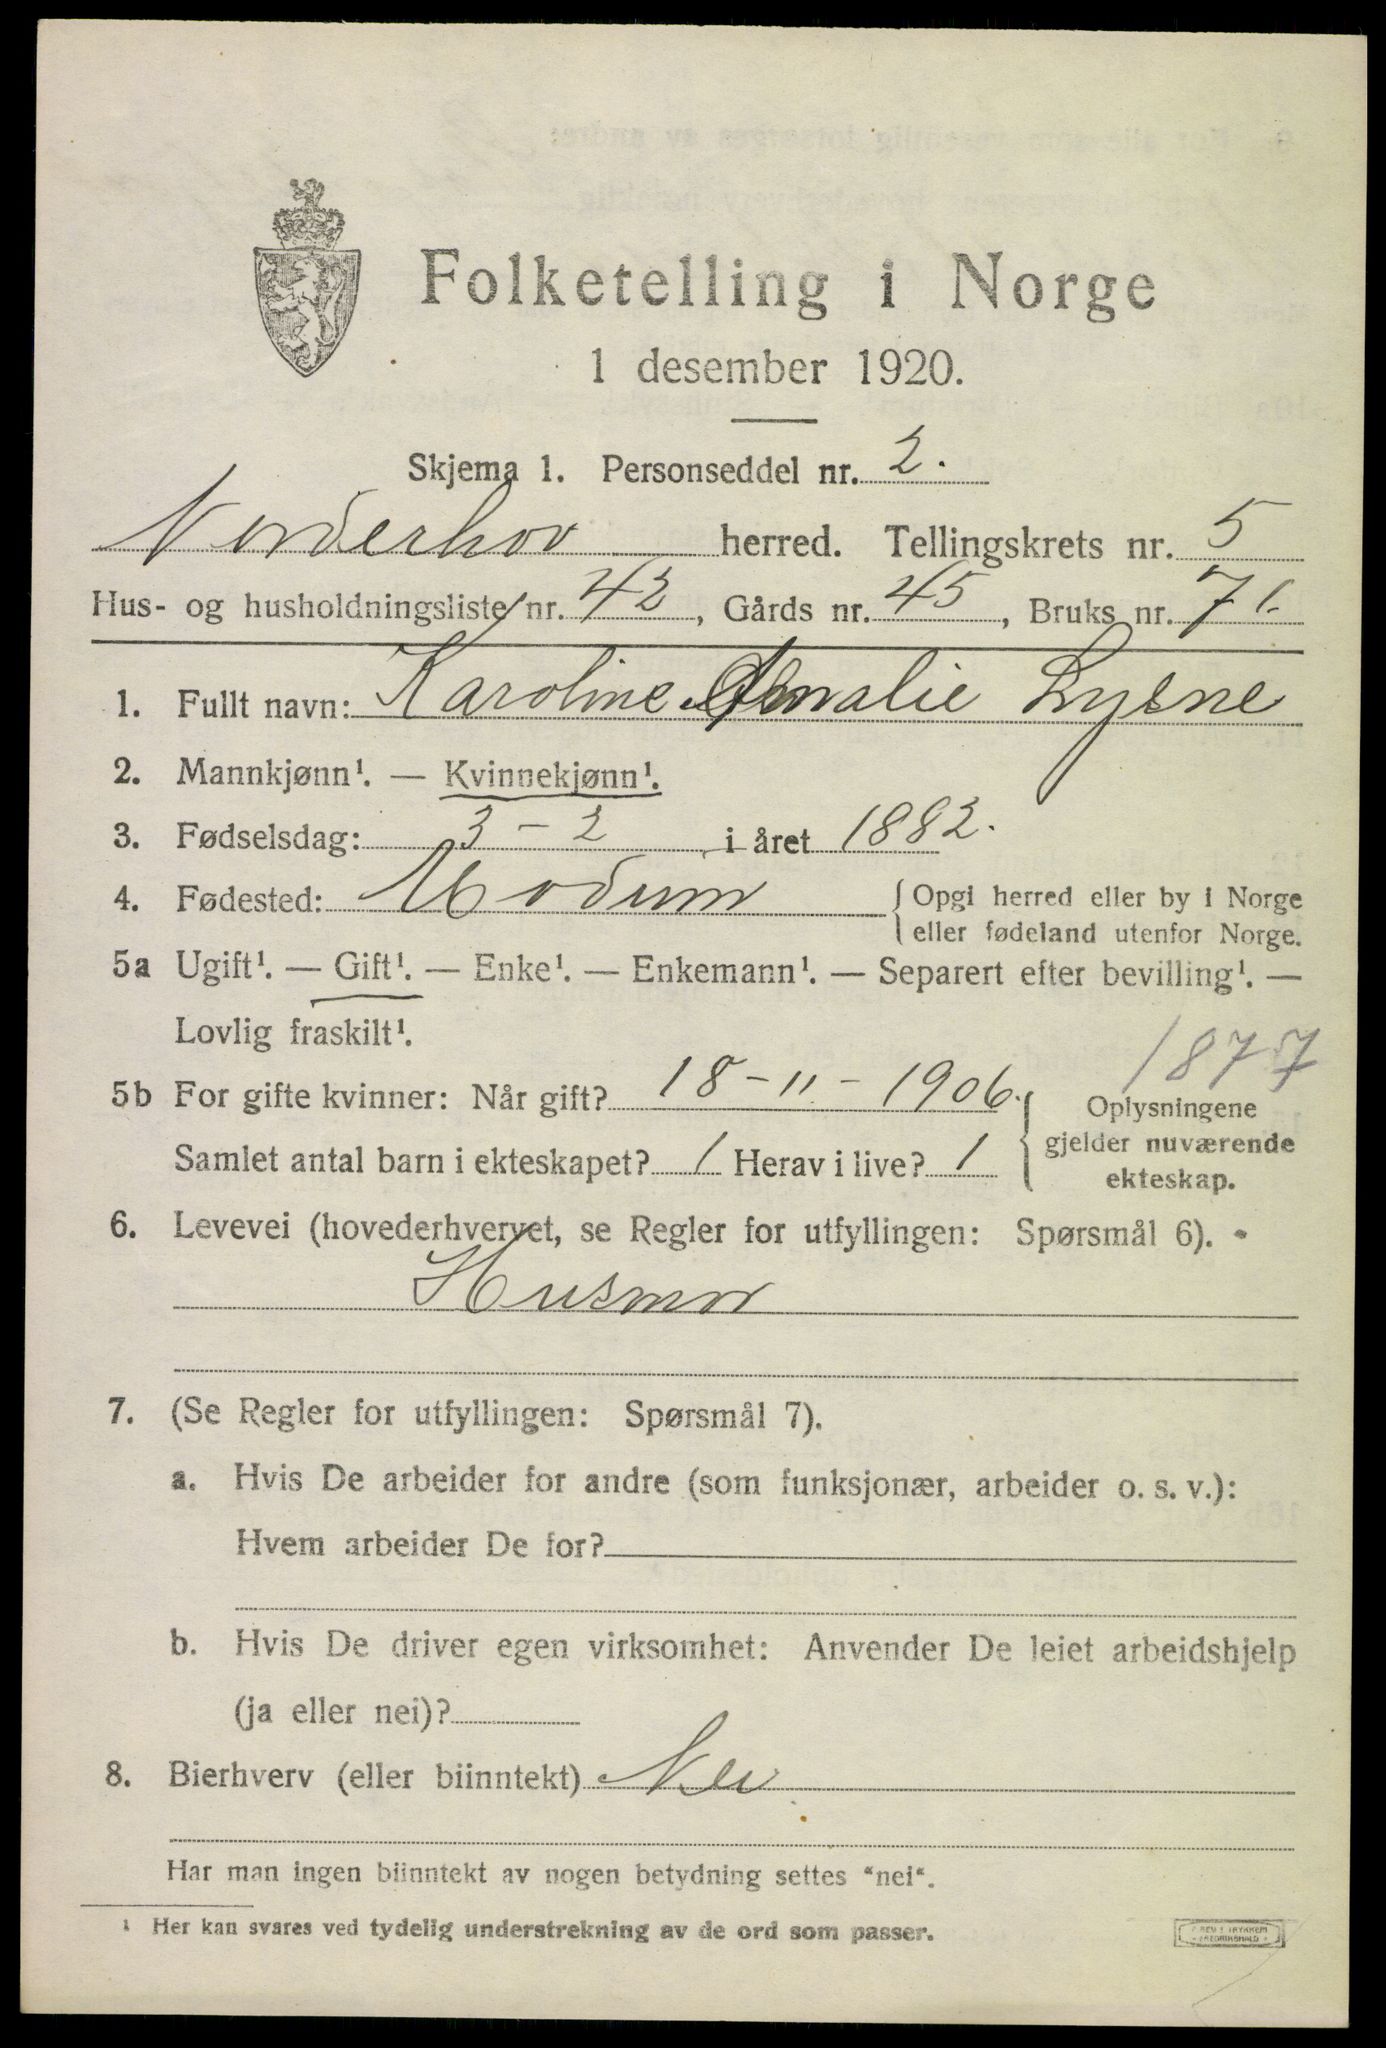 Folketelling i Norge
1 desember 1920.
Skjema 1. Personseddel nr. 2.
Norderhov herred. Tellingskrets nr. 5
Hus- og husholdningsliste nr. 42, Gårds nr. 45, Bruks nr. 71.
1. Fullt navn: Karoline Amalie Lysne
2. Mannkjønn¹. — Kvinnekjønn¹.
3. Fødselsdag: 3 - 2 i året 1882.
4. Fødested: Modum { Opgi herred eller by i Norge
eller fødeland utenfor Norge.
5a Ugift¹. — Gift¹. — Enke¹. — Enkemann¹. — Separert efter bevilling¹. —
Lovlig fraskilt¹.
1877
5b For gifte kvinner: Når gift? 18-11-1906. { Oplysningene
gjelder nuværende
Samlet antal barn i ekteskapet? 1 Herav i live? 1
ekteskap.
6. Levevei (hovederhvervet, se Regler for utfyllingen: Spørsmål 6).
Husmor
7. (Se Regler for utfyllingen: Spørsmål 7).
a. Hvis De arbeider for andre (som funksjonær, arbeider o. s. v.):
Hvem arbeider De for?
b. Hvis De driver egen virksomhet: Anvender De leiet arbeidshjelp
(ja eller nei)?
8. Bierhverv (eller biinntekt) Nei
Har man ingen biinntekt av nogen betydning settes "nei".
¹ Her kan svares ved tydelig understrekning av de ord som passer.